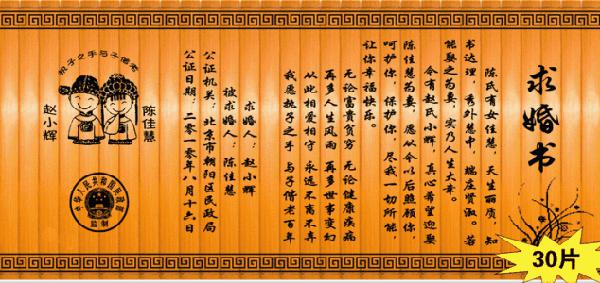 求婚书
陈氏有女佳慧，天生丽质，知
书达理，秀外慧中，端庄贤淑。若
能娶之为妻，实乃人生大幸。
今有赵氏小辉，真心希望迎娶
陈佳慧为妻，愿从今以后照顾你，
呵护你，保护你，尽我一切所能，
让你幸福快乐。
无论富贵贫穷 无论健康疾病
再多人生风雨 再多世事变幻
从此相爱相守 永远不离不弃
我愿执子之手 与子偕老百年
求婚人：赵小辉
被求婚人：陈佳慧
公证机关：北京市朝阳区民政局
公证日期：二〇一〇年八月十六日
执子之手与子偕老
陈佳慧
赵小辉
中华人民共和国民政部
监制
30片